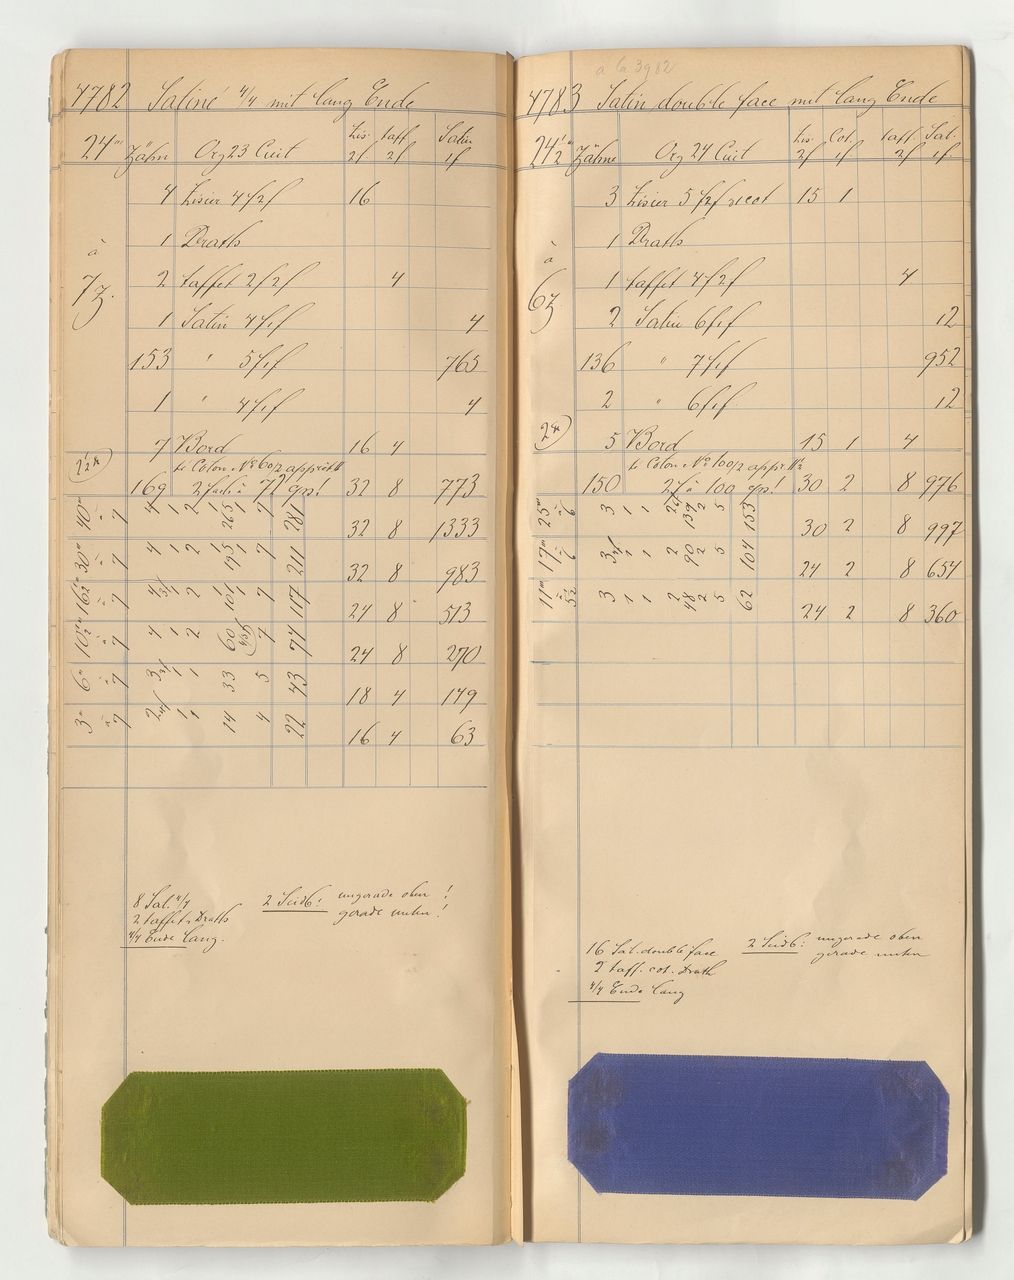 4782 Satiné 4/4 mit lang Ende
24''' Zähn Org 23 Cuit Lis. 2f taff. 2f Satin 1f
4 Lisier 4f2f 16
1 Drath
à
7Z.
2 taffet 2f2f 4
1 Satin 4f1f 4
153 " 5f1f 765
1 " 4f1f 4
7 Bord 16 4
te Coton No 60/2 apprêt
169 2fach à 72 gs! 32 8 773
40''' à 7 4 1 2 1 265 1 7 281 32 8 1333
30''' à 7 4 1 2 1 195 1 7 211 32 8 983
16½''' à 7 1 2 101 7 117 24 8 513
10½''' à 7 4 1 2 60 7 74 24 8 270
6''' à 7 1 1 33 5 43 18 4 149
3''' à 7 1 1 14 4 22 16 4 63
8 Sat. 4/4
2 taffet. Drath
4/4 Ende lang.
2 Seidb: ungerade oben!
gerade unten!
a la 3982
4783 Satin double face mit lang Ende
24½''' Zähne Org 24 Cuit Lis. 2f Cot. 1f taff 2f Sat. 1f
3 Lisier 5f2f 1 cot 15 1
1 Drath
à
6Z
1 taffet 4f2f 4
2 Satin 6f1f 12
136 " 7f1f 952
2 " 6f1f 12
5 Bord 15 1 4
te Coton No 100/2 appr.
150 2f à 100 gs! 30 2 8 976
25''' à 6 3 1 1 139 2 5 153 30 2 8 997
17''' à 6 1 1 2 90 2 5 104 24 2 8 654
11''' à 5½ 3 1 1 2 48 2 5 62 24 2 8 360
16 Sat. double face
2 taff. cot. Drath
4/4 Ende lang
2 Seidb: ungerade oben
gerade unten